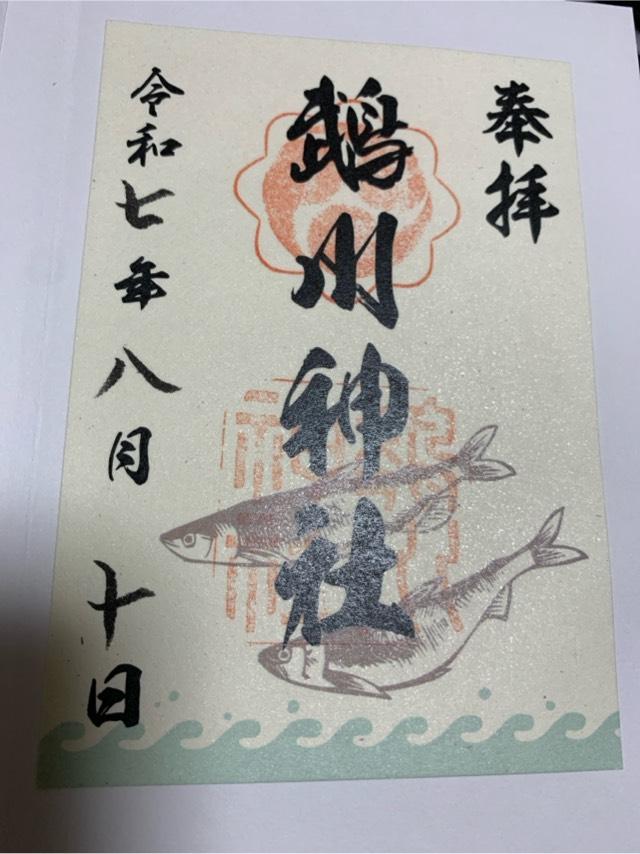 奉拝
鵡川神社
令和七年八月十日